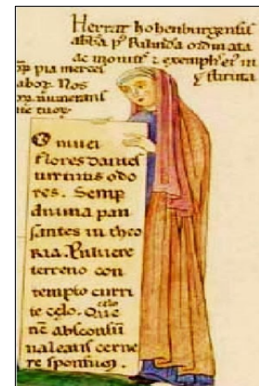 Herrat hohenburgensis
abba p⁹ Rilinda ordinata
ac monitis ⁊ exemplis ei⁹ in
pia mercei
⁊ stituta
abor. Nos
numerans
O nivei
flores dantes
virtutis odo
res. Semp
divina pau
santes in theo
ria. Pulvere
terreno con
tempto curri
te celo. Que
nc̄ absconsū
valeatis cerne
re sponsum.